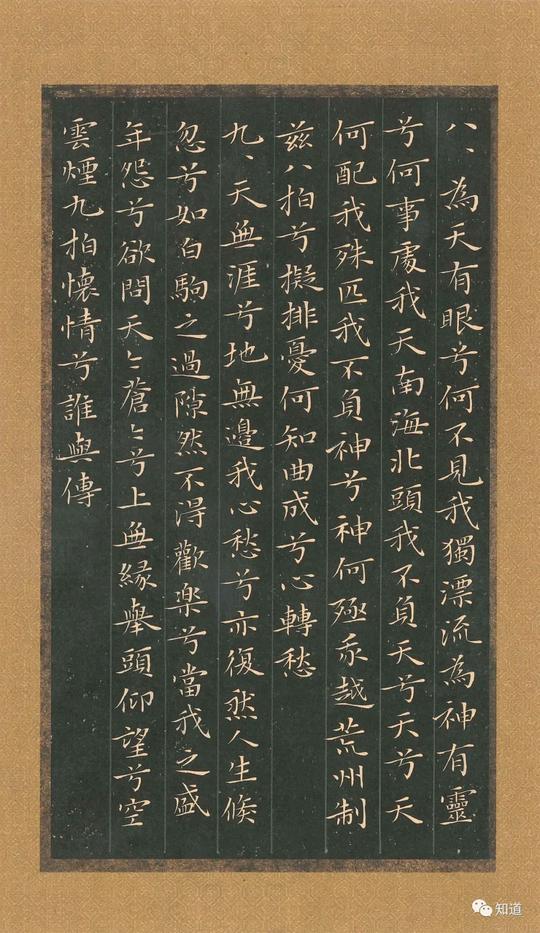 八、為天有眼兮何不見我獨漂流為神有靈
兮何事處我天南海北頭我不負天兮天兮天
何配我殊匹我不負神兮神何殛我越荒州制
茲八拍兮擬排憂何知曲成兮心轉愁
九、天無涯兮地無邊我心愁兮亦復然人生倏
忽兮如白駒之過隙然不得歡樂兮當我之盛
年怨兮欲問天〻蒼〻兮上無緣舉頭仰望兮空
雲煙九拍懷情兮誰與傳
知道